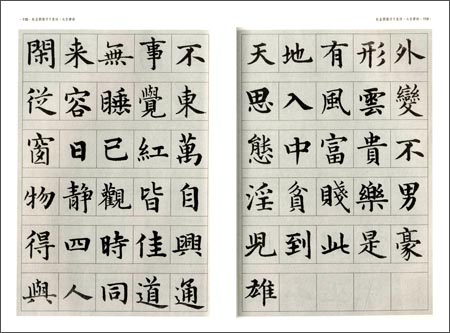 閑来無事不
従容睡覺東
窗日已紅萬
物静觀皆自
得四時佳興
與人同道通
天地有形外
思入風雲變
態中富貴不
淫貧賤樂男
兒到此是豪
雄